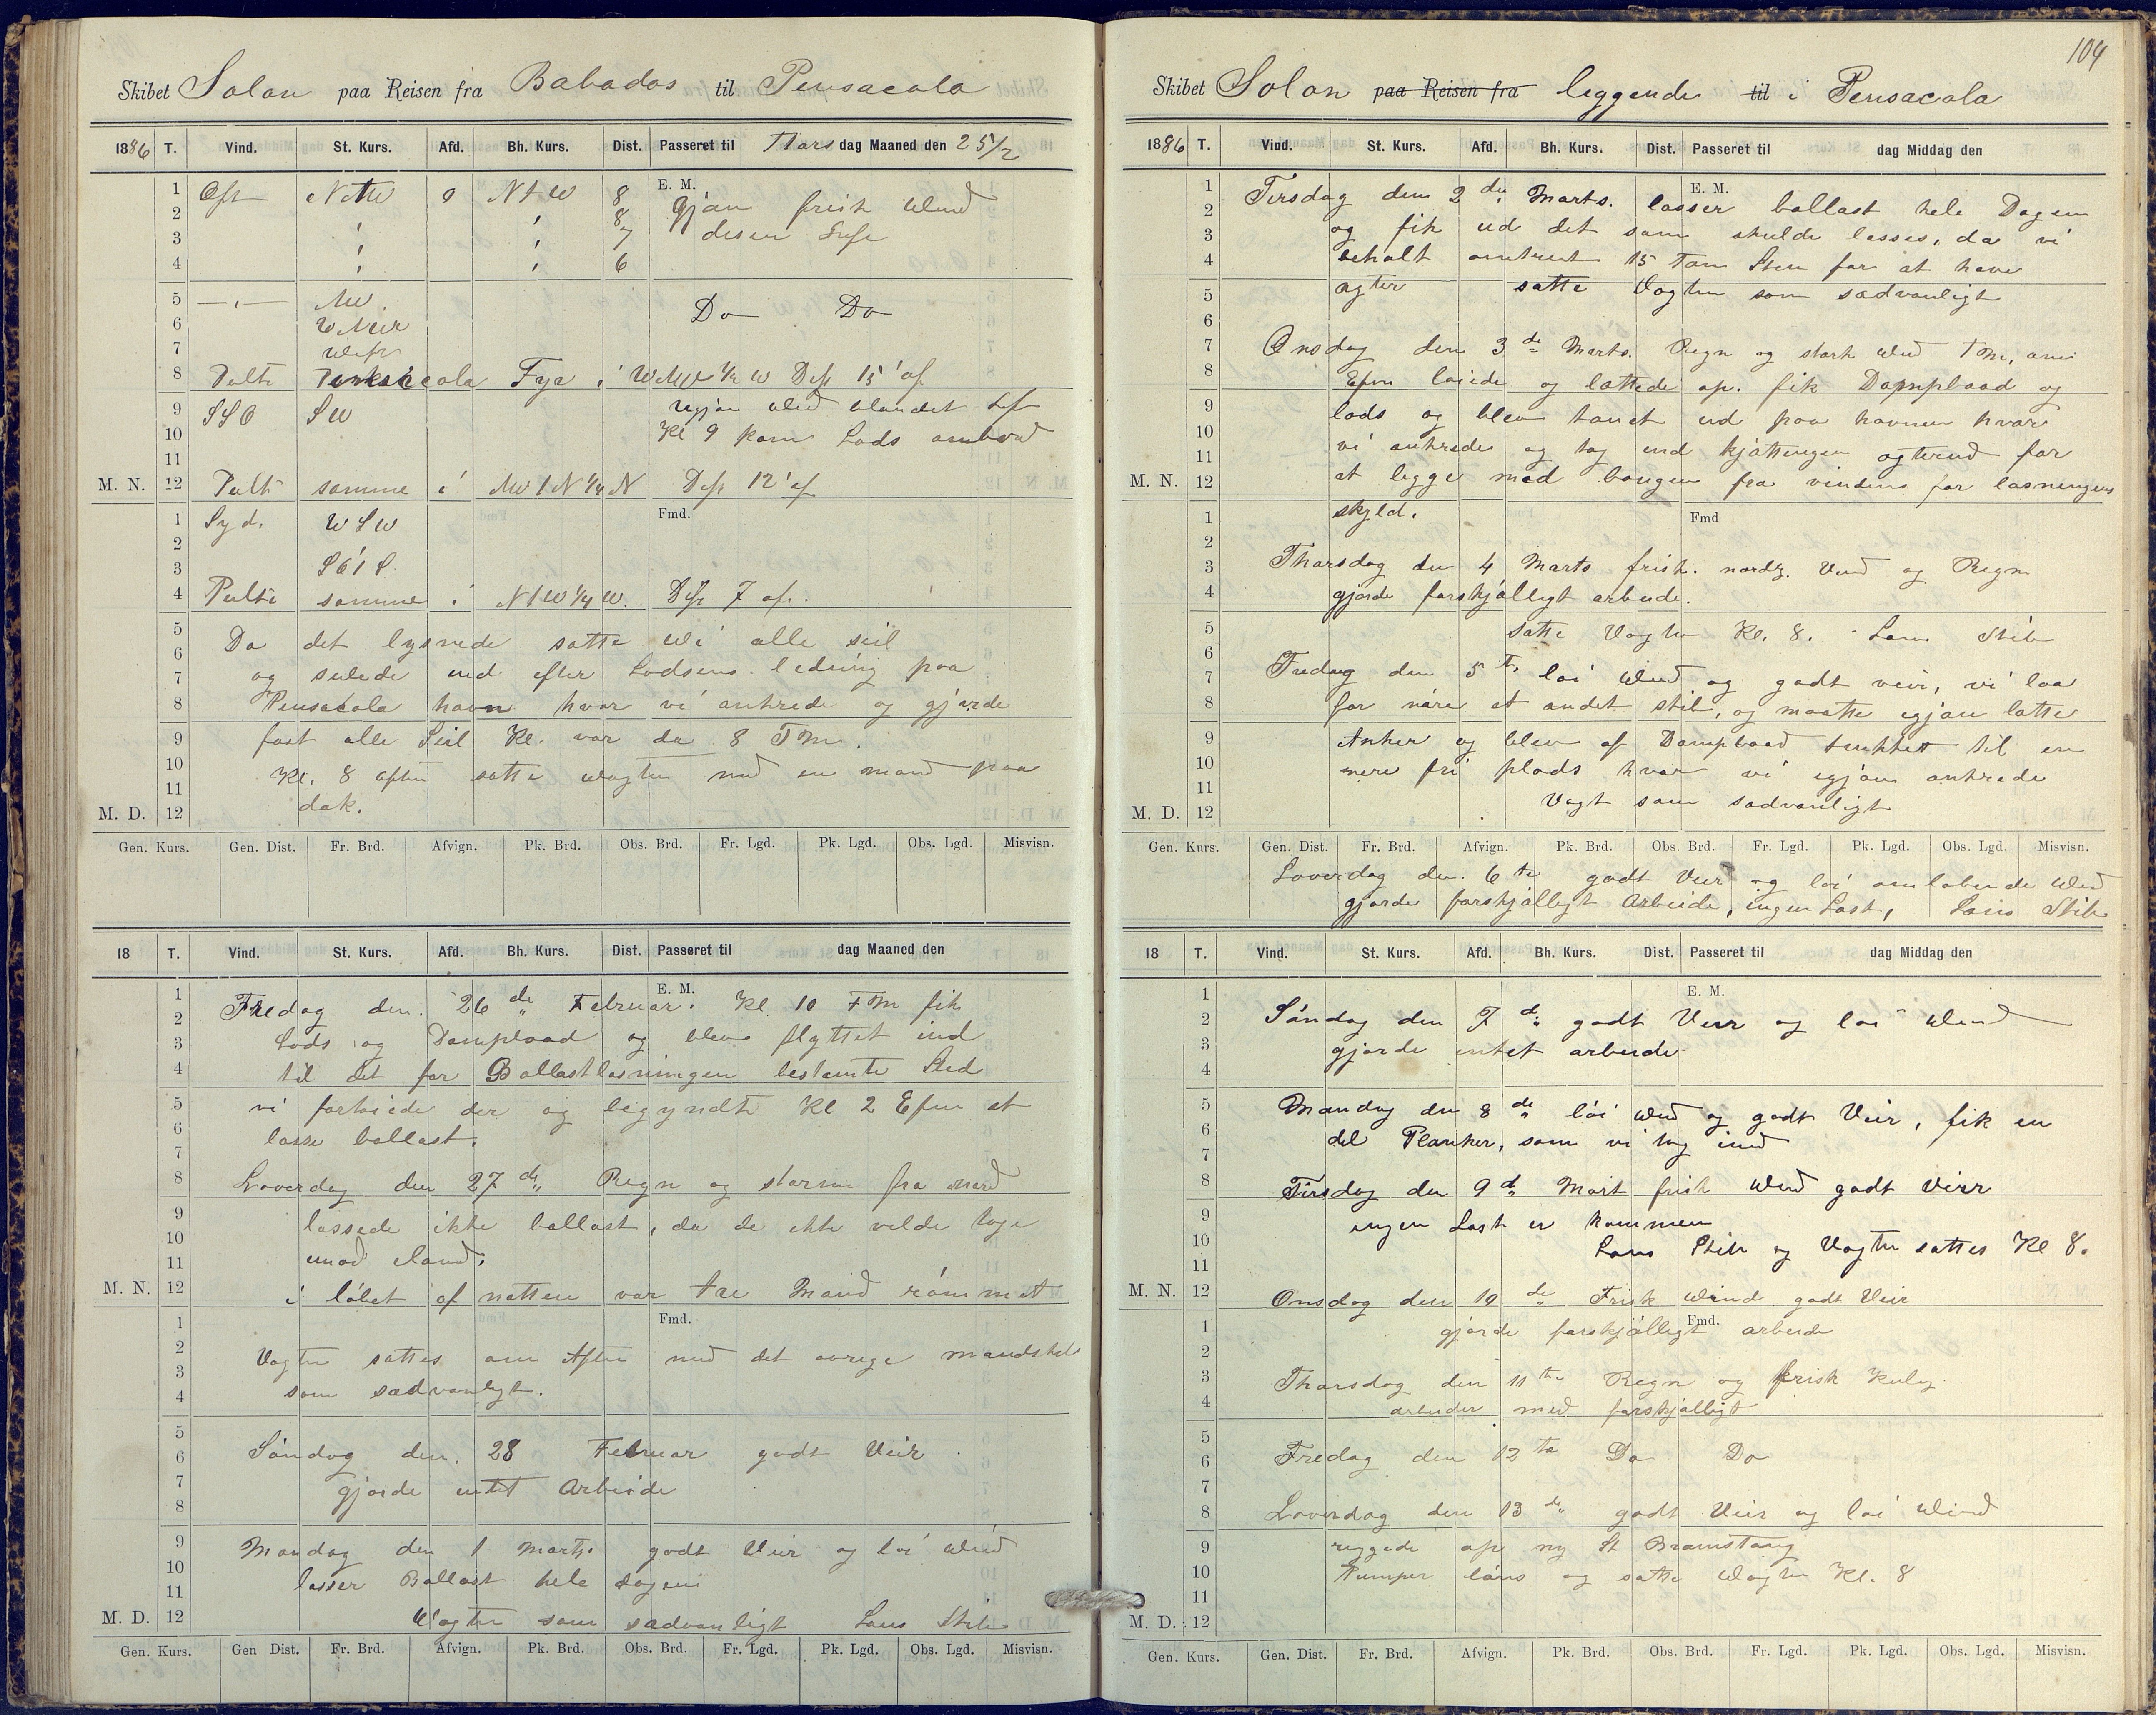 Skibet Solon paa Reisen fra Babados til Pensacola
1886 T. Vind. St. Kurs. Afd. Bh. Kurs. Dist. Passeret til Thorsdag Maaned den 25/2
E. M.
1 Øst 0 NtW 8 Igjen frisk Wind
2 8 disen Luft
3 7
4 6
5 NW Do Do
6
7
8 Peilte Pensacola Fyr i Dist 15' af
9 SSO SW ugjen Wind blandet Luft
10 Kl 9 kom Lods ombord
11
M. N. 12 Peilte samme i NW t N 1/4 N Dist 12' af
Fmd.
1 Syd. WSW
2
3
4 Peilte samme i NtW 1/4 W. Dist 7 af.
5 Da det lysnede satte Wi alle seil
6 og seilede ind efter Lodsens ledning paa
7
8 Pensacola havn hvor vi ankrede og gjorde
9 fast alle Seil Kl. var da 8 Fm.
10 Kl. 8 aften satte wagten med en mand paa
11 dæk.
M. D. 12
Gen. Kurs. Gen. Dist. Fr. Brd. Afvign. Pk. Brd. Obs. Brd. Fr. Lgd. Pk. Lgd. Obs. Lgd. Misvisn.
18 T. Vind. St. Kurs. Afd. Bh. Kurs. Dist. Passeret til dag Maaned den
E. M.
1 Fredag den. 26 de Februar. Kl 10 FM fik
2
3 Lods og Dampbaad og blev flyttet ind
4 til det for Ballastlosningen bestemte Sted
5 vi fortoiede der og begyndte Kl 2 Efm at
6 losse ballast.
7
8 Loverdag den 27 de Regn og storm fra nord
9 lossede ikke ballast, da de ikke vilde tage
10
11 imod iland.
M. N. 12 i löbet af natten var tre Mand römmet
Fmd.
1
2 Vagten sattes om Aften med det øvrige mandskab
3
4 som sædvanligt.
5
6 Söndag den. 28 Februar godt Veir
7 gjorde intet Arbeide
8
9 Mandag den 1 Marts. godt Veir og löi Wind
10
11 losser Ballast hele dagen
M. D. 12 Vagten som sædvanligt Lens Skib
Gen. Kurs. Gen Dist. Fr. Brd. Afvign. Pk. Brd. Obs. Brd. Fr. Lgd. Pk. Lgd. Obs. Lgd. Misvisn.
104
Skibet Solon paa Reisen fra leggende til i Pensacola
1886 T. Vind. St. Kurs. Afd. Bh. Kurs. Dist. Passeret til dag Middag den
E. M.
1 Tirsdag den 2 den Marts. losser ballast hele Dagen
2 og fik ud det som skulde losses, da vi
3
4 behalt omtrent 15 Ton Sten for at have
5 agter satte Vagten som sædvanligt
6
7 Onsdag den 3 de Marts. Regn og stærk Wind Fm, om
8 Efm löiede og lættede op. fik Dampbaad og
9 lods og blev tauet ud paa havnen hvor
10 vi ankrede og tog ind kjættingen agterud for
11
M. N. 12 at legge med bougen fra vinden for lasningens
1 skyld. Fmd
2
3 Thorsdag den 4 Marts frisk. nordlg. Vind og Regn
4 gjorde forskjælligt arbeide.
5 satte Vagten Kl. 8. Lens Skib
6
7 Fredag den 5 te löi Wind og godt veir, vi laa
8 for nære et andet skib, og maatte igjen lætte
9 Anker og blev af Dampbaad trukket til en
10 mere fri plads hvor vi igjen ankrede
11 Vagt som sædvanligt
M. D. 12
Gen. Kurs. Gen. Dist. Fr. Brd. Afvign. Pk. Brd. Obs. Brd. Fr. Lgd. Pk. Lgd. Obs. Lgd. Misvisn.
Loverdag den. 6 te godt Veir og löi omløbende Wind
gjorde forskjælligt Arbeide, ingen Last, Lens Skib
18 T. Vind. St. Kurs. Afd. Bh. Kurs. Dist. Passeret til dag Middag den
E. M.
1
2 Söndag den 7 de godt Veir og löi Wind
3 gjorde intet arbeide
4
5 Mandag den 8 de löi Wind og godt Veir, fik en
6 del Planker, som vi tog ind
7
8 Tirsdag den 9 de Mart frisk Wind godt Veir
9 ingen Last er kommen
10 Lens Skib og Vagten sattes Kl 8.
11
M. N. 12 Onsdag den 10 de Frisk Wind godt Veir
Fmd.
1 gjorde forskjælligt arbeide
2
3 Thorsdag den 11 te Regn og frisk Kuling
4 arbeider med forskjælligt
5
6 Fredag den 12 te Do Do
7
8 Loverdag den 13 de godt Veir og löi Wind
9 riggede op ny St Bramstang
10 Pumper læns og satte Wagten Kl. 8
11
M. D. 12
Gen. Kurs. Gen. Dist. Fr. Brd. Afvign. Pk. Brd. Obs. Brd. Fr. Lgd. Pk. Lgd. Obs. Lgd. Misvisn.